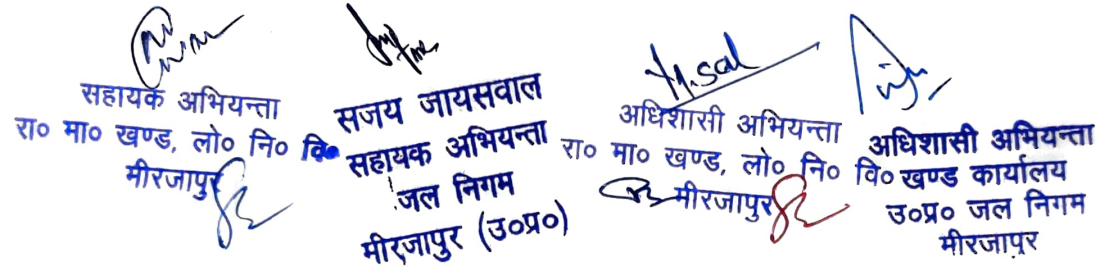 सहायक अभियन्ता
रा० मा० खण्ड, लो० नि० वि०
मीरजापुर
सजय जायसवाल
सहायक अभियन्ता
जल निगम
मीरजापुर (उ०प्र०)
अधिशासी अभियन्ता
रा० मा० खण्ड, लो० नि० वि०
मीरजापुर
अधिशासी अभियन्ता
खण्ड कार्यालय
उ०प्र० जल निगम
मीरजापुर